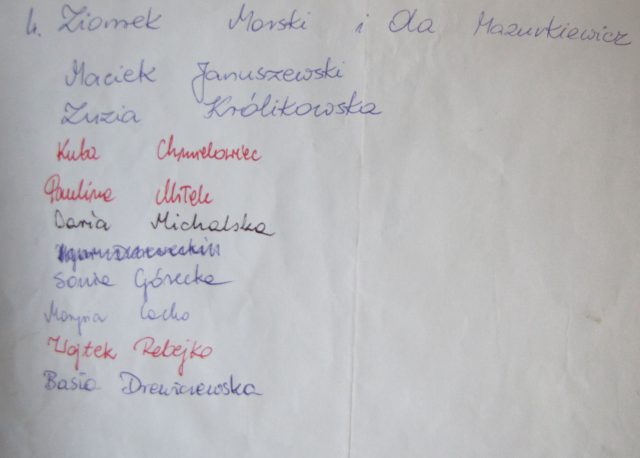 Ziomek Morski i Ola Mazurkiewicz
Maciek Januszewski
Zuzia Królikowska
Kuba Chmielowiec
Paulina Miłek
Daria Michalska
Sonia Górecka
Wojtek Rebejko
Basia